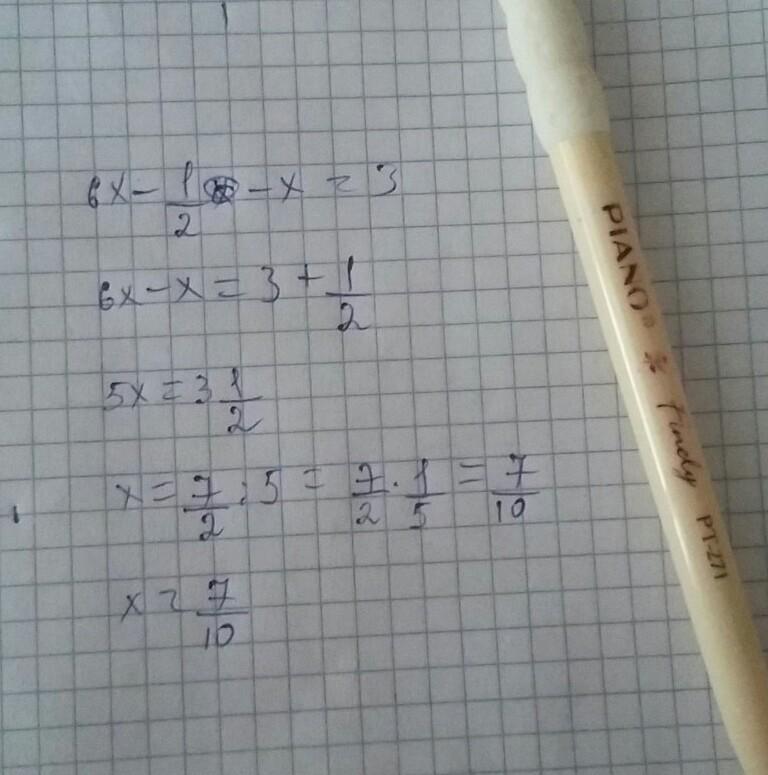 6x - 1/2 - x = 3
6x - x = 3 + 1/2
5x = 3 1/2
x = 7/2 : 5 = 7/2 · 1/5 = 7/10
x = 7/10
PIANO® Tindy PT-271